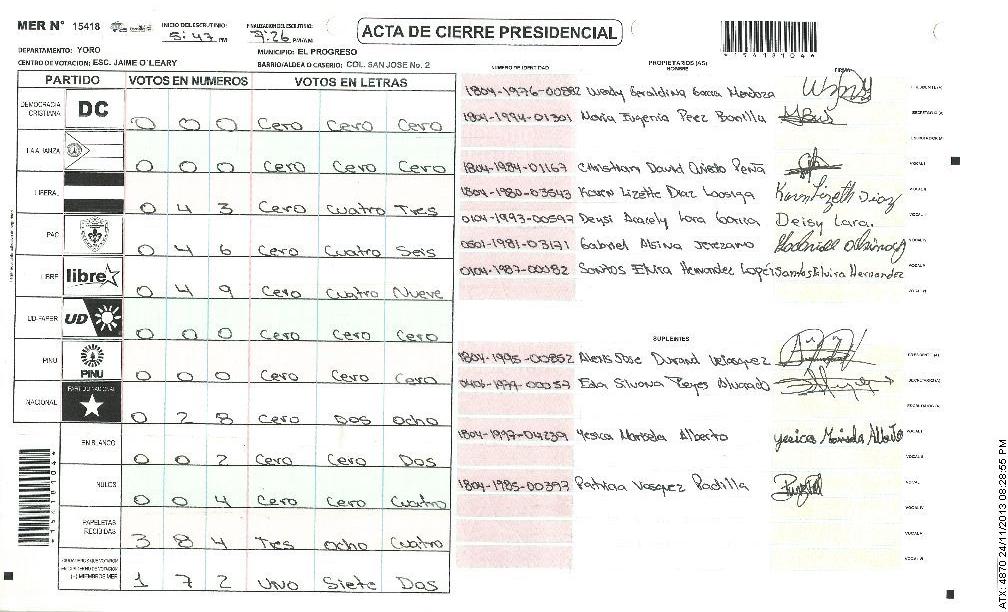 MER N° 15418 INICIO DEL ESCRUTINIO: 5:47 PM FINALIZACION DEL ESCRUTINIO: 7:26 PM/AM
ACTA DE CIERRE PRESIDENCIAL
DEPARTAMENTO: YORO MUNICIPIO: EL PROGRESO
CENTRO DE VOTACION: ESC. JAIME O'LEARY BARRIO/ALDEA O CASERIO: COL. SAN JOSE No. 2
PARTIDO VOTOS EN NUMEROS VOTOS EN LETRAS
DEMOCRACIA CRISTIANA DC 0 0 0 Cero Cero Cero
LA ALIANZA 0 0 0 Cero Cero Cero
LIBERAL 0 4 3 Cero Cuatro Tres
PAC 0 4 6 Cero Cuatro Seis
LIBRE libre 0 4 9 Cero Cuatro Nueve
UD-FAPER UD 0 0 0 Cero Cero Cero
PINU PINU 0 0 0 Cero Cero Cero
NACIONAL PARTIDO NACIONAL 0 2 8 Cero Dos ocho
EN BLANCO 0 0 2 Cero Cero Dos
NULOS 0 0 4 Cero Cero Cuatro
PAPELETAS RECIBIDAS 3 8 4 Tres ocho Cuatro
1 7 2 Uno Siete Dos
NUMERO DE IDENTIDAD PROPIETARIOS (AS) NOMBRE FIRMA
1804-1976-00882 Wendy Geraldina Garcia Mendoza
1804-1994-01301 Maria Eugenia Perez Bonilla SECRETARIO(A)
1804-1984-01167 Christhian David Oviedo Peña VOCAL I
1804-1980-03543 Karen Lizette Diaz Karen Lizeth Diaz
0104-1993-00597 Deysi Aracely Lara Garcia Deisy Lara.
0501-1981-03171 Gabriel Jerezano
0104-1987-00082 Santos Elvira Hernandez Lopez Santos Elvira Hernandez
SUPLENTES
1804-1995-00852 Alexis Jose Durand Velasquez
0406-1979-00057 Eda Silvana Reyes Alvarado
1804-1997-04239 Yesica Marisela Alberto yesica Marisela Alberto
1804-1985-00397 Patricia Vasquez Padilla
ATX: 4870 24/11/2013 08:28:55 PM